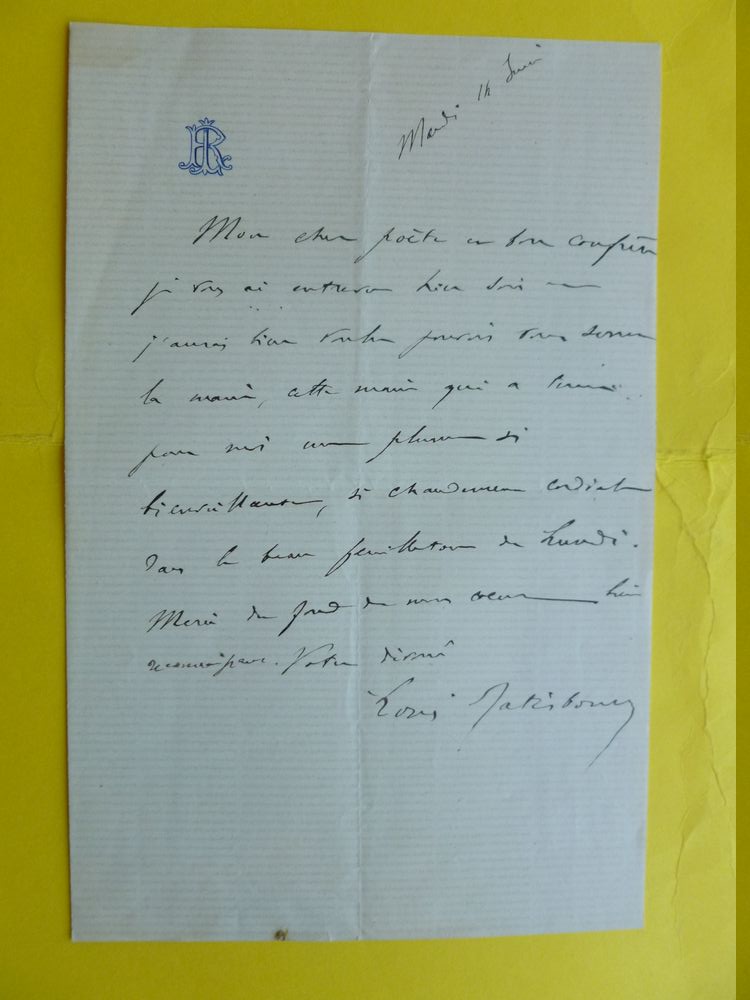 Mardi 14 Juin
R
Mon cher poète et bon confrère
je vous ai entrevu hier soir et
j'aurais bien voulu pouvoir vous serrer
la main, cette main qui a tenu
pour moi une plume si
bienveillante, si chaudement cordiale
dans le beau feuilleton de Lundi.
Merci du fond de mon cœur bien
reconnaissant. Votre dévoué
Louis Ratisbonne